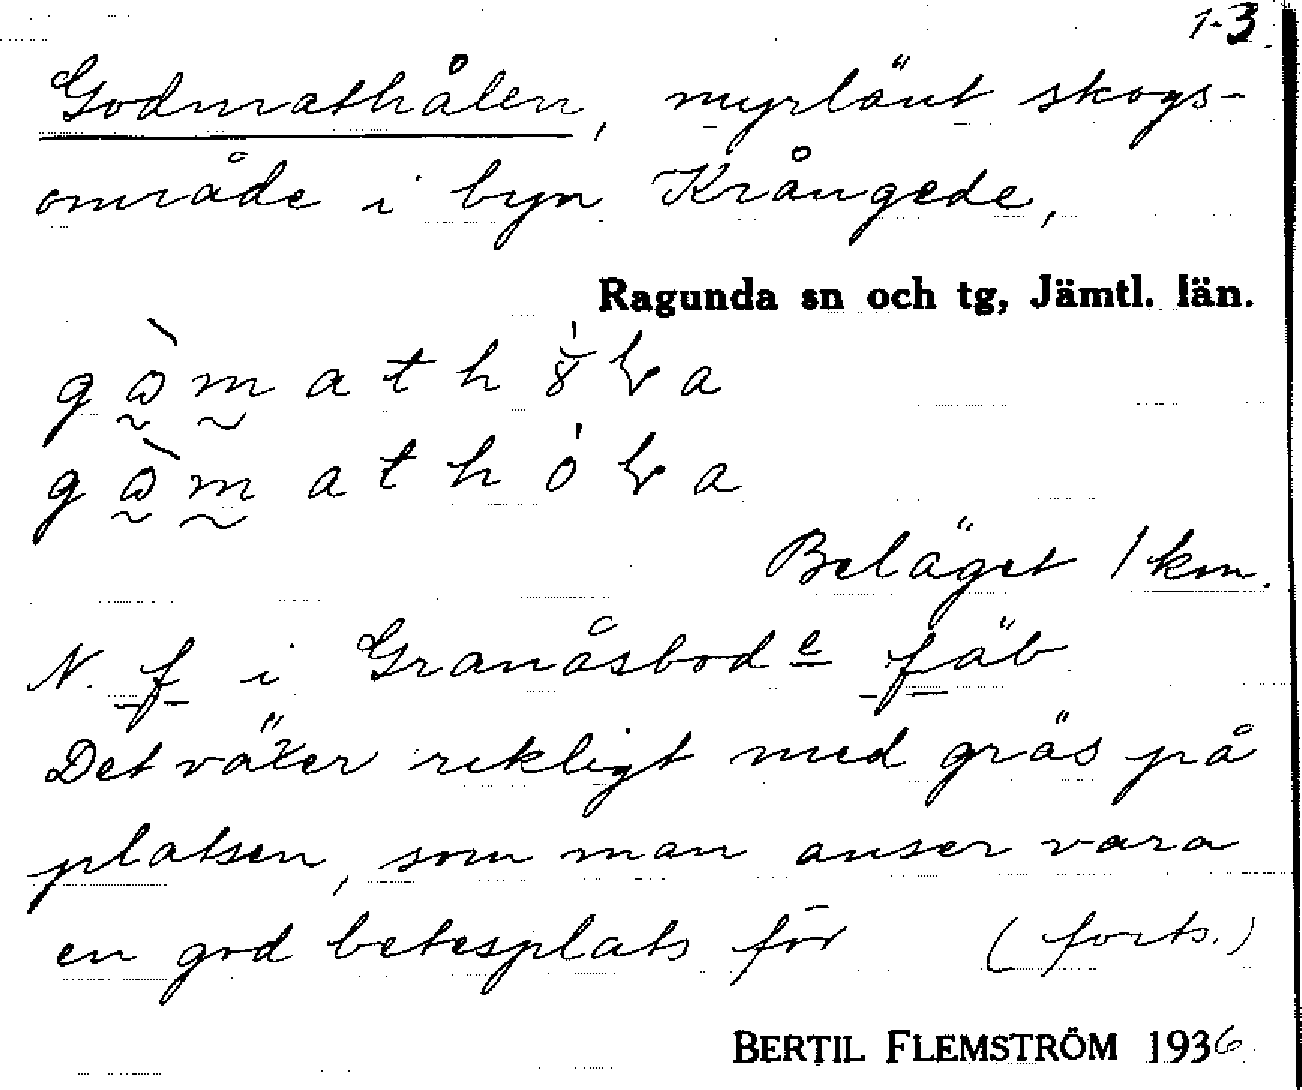 1-3.
Godmathålen, myrlänt skogs-
område i byn Krångede,
Ragunda sn och tg, Jämtl. län.
Beläget 1 km.
N. f i Granåsbode fäb
Det växer rikligt med gräs på
platsen, som man anser vara
en god betesplats för (forts.)
BERTIL FLEMSTRÖM 1936